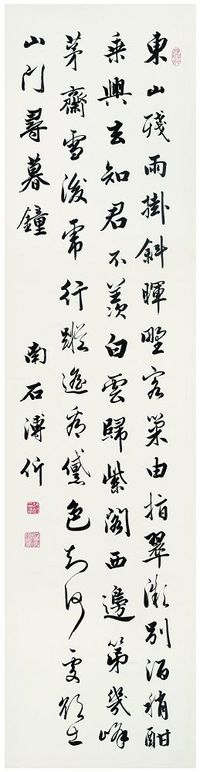 東山殘雨掛斜暉野客巢由指翠微別酒稍酣
乘興去知君不羨白雲歸紫閣西邊第幾峰
茅齋雪後虎行蹤遙看黛色知何處欲出
山門尋暮鐘
南石溥伒